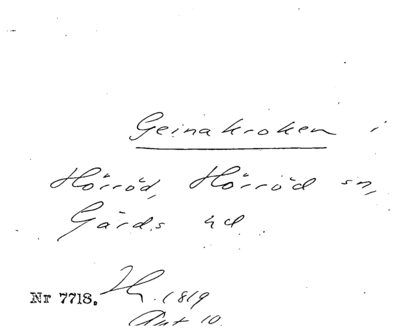 Geinakroken i
Hörröd, Hörröd sn,
Gärds hd
Nr 7718. 1819
Akt 10.